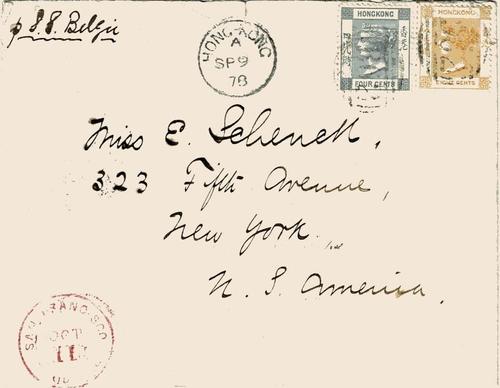 p S.S. Belgic
HONG-KONG
A
SP 9
78
HONGKONG
FOUR CENTS
HONGKONG
EIGHT CENTS
Miss E. Schenck,
323 Fifth Avenue,
New York.
U. S. America.
SAN FRANCISCO
OCT